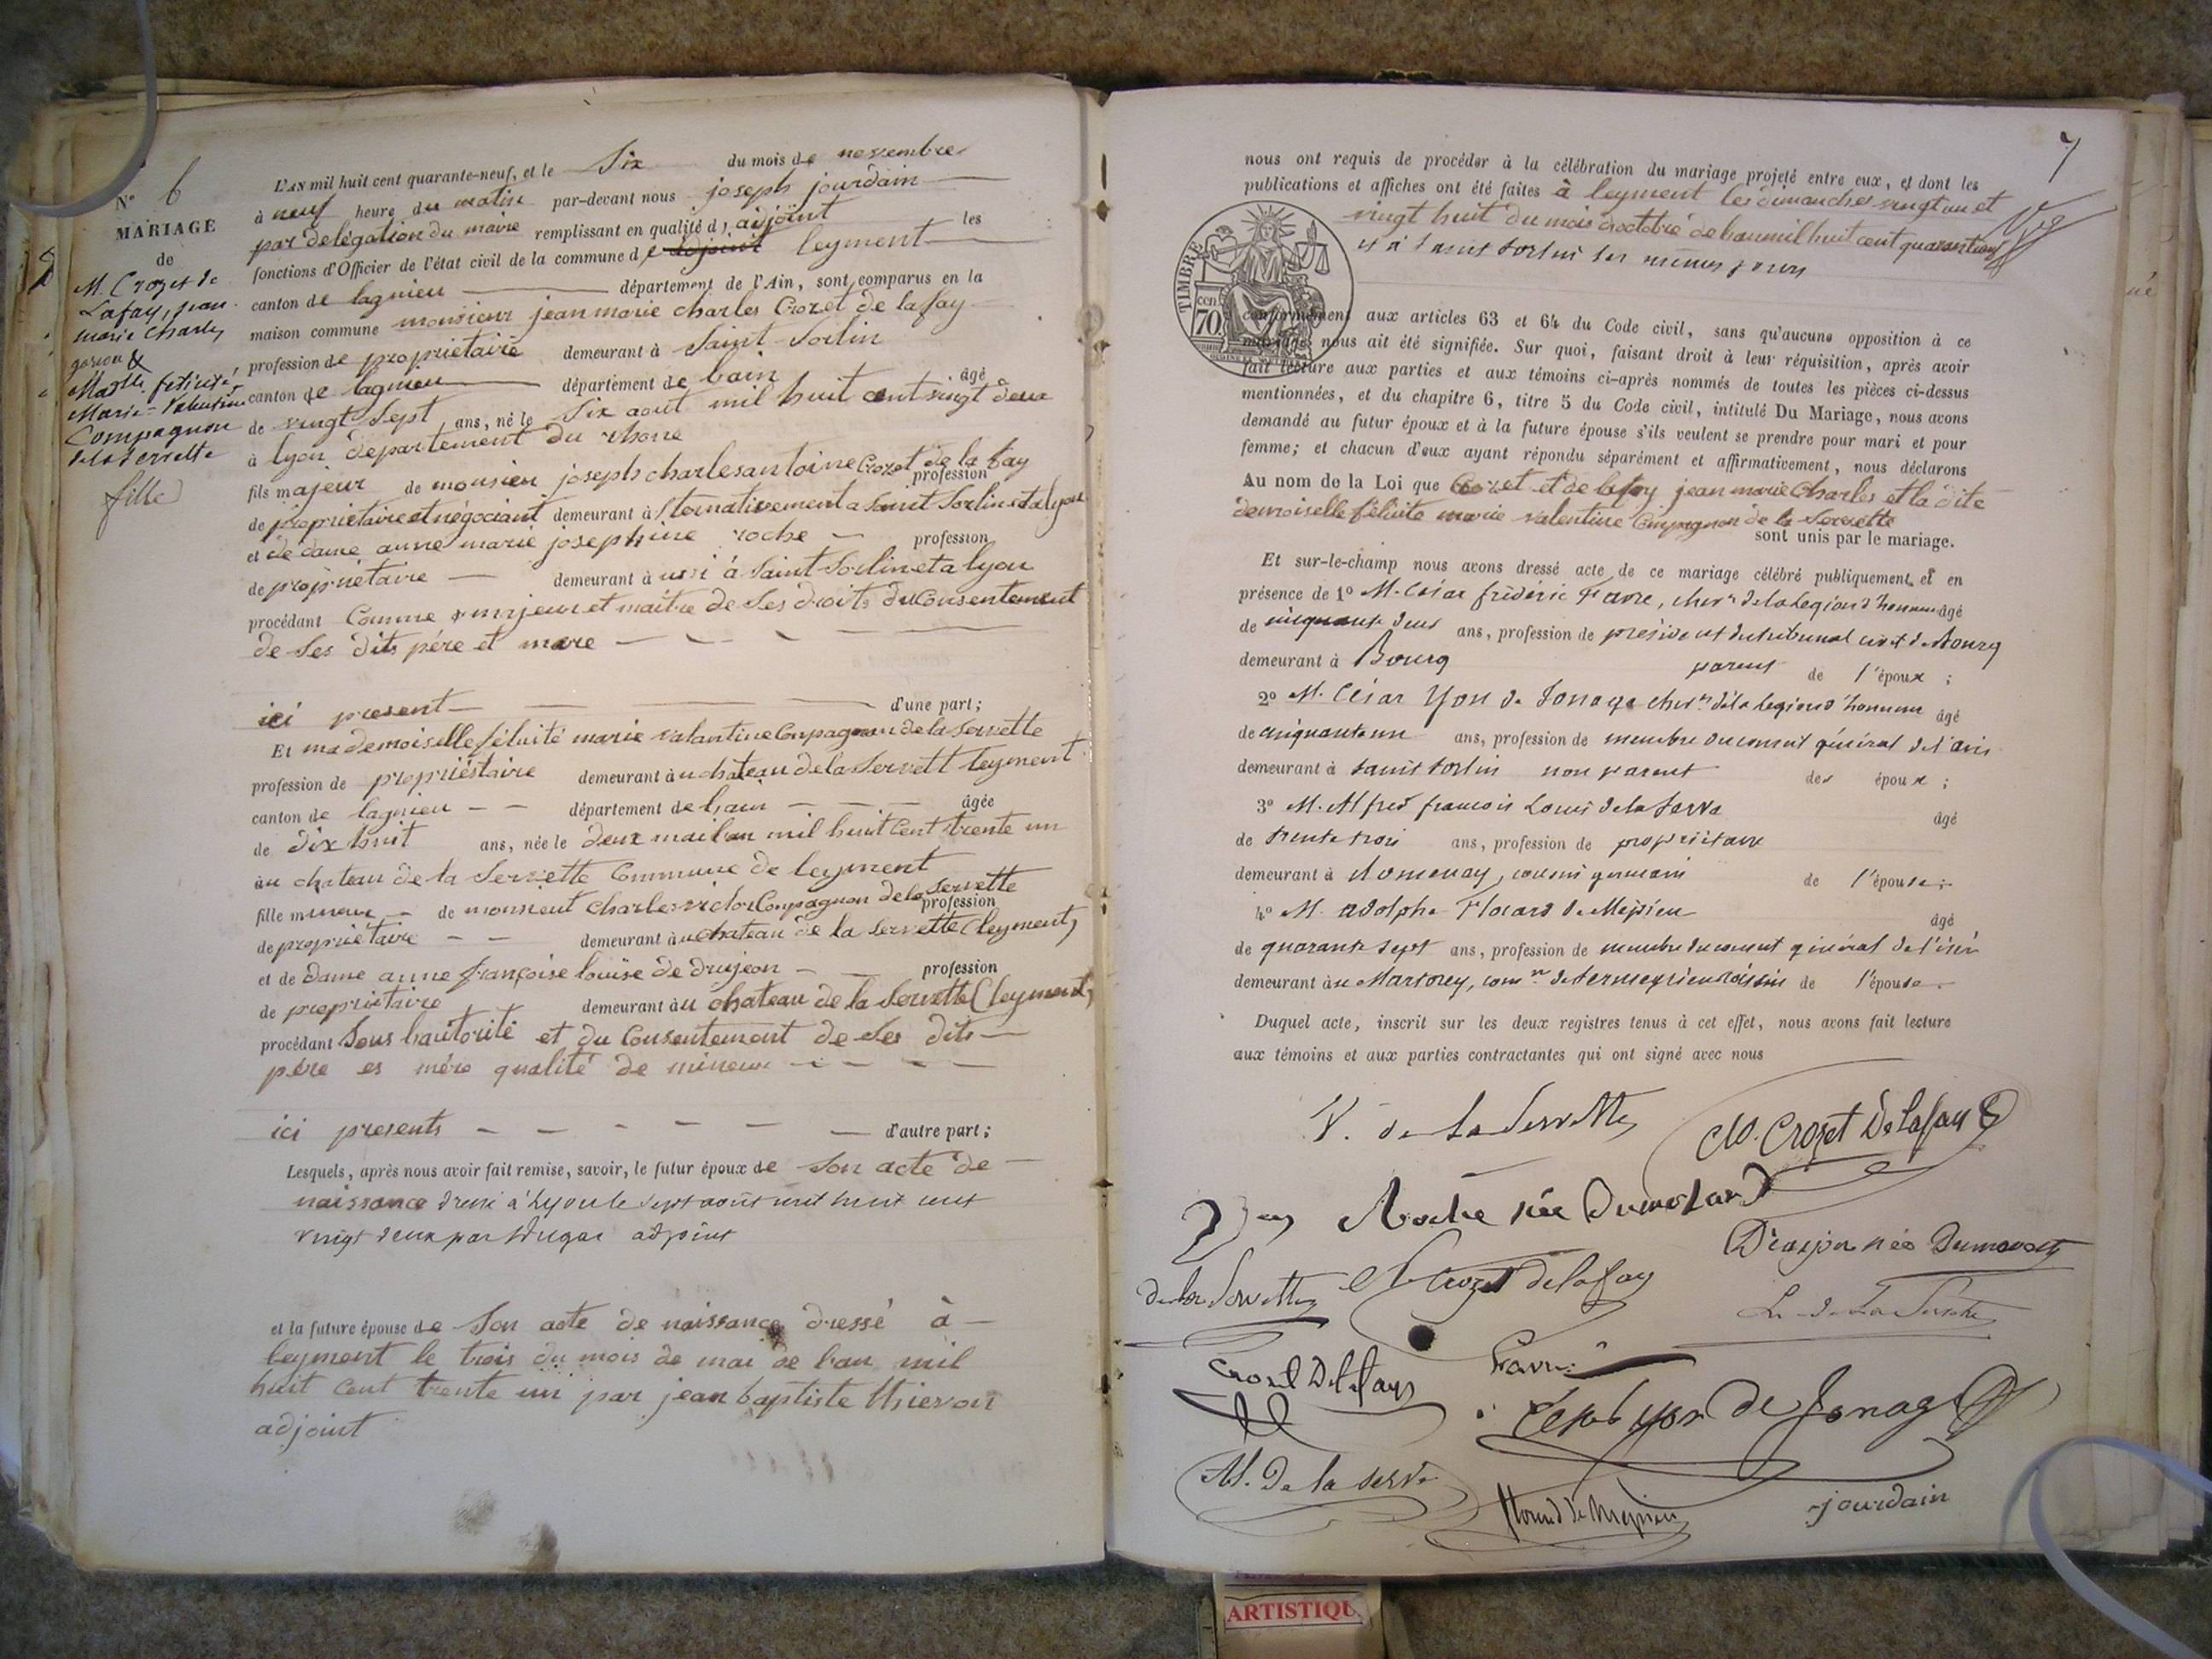 N° 6
MARIAGE
de
M. Crozet de
Lafay, jean
marie Charles
garçon &
Madlle félicité,
Marie-Valentine
Compagnon
de la servette
fille
L'AN mil huit cent quarante-neuf, et le Six du mois de novembre
à neuf heure du matin par-devant nous joseph jourdain
par délégation du maire remplissant en qualité d'adjoint les
fonctions d'Officier de l'état civil de la commune de adjoint leyment
canton de lagnieu département de l'Ain, sont comparus en la
maison commune monsieur jean marie charles Crozet de lafay
profession de propriétaire demeurant à Saint-Sorlin
canton de lagnieu département de lain âgé
de vingt Sept ans, né le Six aout mil huit cent vingt deux
à lyon département du rhone
fils majeur de monsieu joseph charles antoine Crozet de la fay
profession
de propriétaire et négociant demeurant à lternativement a Saint Sorlin et a lyon
et de dame anne marie josephine roche profession
de propriétaire demeurant à ussi à Saint Sorlin et a lyon
procédant Comme majeur et maitre de Ses droits du Consentement
de Ses dits pére et mere
ici present d'une part;
Et mademoiselle féliuité marie valantine Conpagnon de la servette
profession de propriéstaire demeurant àu chateau de la Servett leyment
canton de lagnieu département de lain âgée
de dix huit ans, née le deux mai lan mil huit Cent trente un
àu chateau de la Servette Commune de leyment
fille mineur de monsieut Charles victor Conpagnon de la Servette
profession
de propriétaire demeurant àu chateau de la servette (leyment)
et de dame anne françoise louise de drujeon profession
de propriétaire demeurant àu chateau de la Servette (leyment)
procédant Sous lautorité et du Consentement de Ses dits
pére es mére qualité de mineur
ici presents d'autre part;
Lesquels, après nous avoir fait remise, savoir, le futur époux de Son acte de
naissance dressé à Lyon le sept août mil huit cent
vingt deux par adjoint
et la future épouse de Son acte de naissance dressé à
leyment le trois du mois de mai de l'an mil
huit Cent trente un par jean baptiste thievon
adjoint
7
nous ont requis de procéder à la célébration du mariage projeté entre eux, et dont les
publications et affiches ont été faites à leyment les dimanches vingt un et
vingt huit du mois doctobre de l'an mil huit cent quarante neuf
et à Saint Sorlin les mêmes jours
TIMBRE
70
conformément aux articles 63 et 64 du Code civil, sans qu'aucune opposition à ce
mariage nous ait été signifiée. Sur quoi, faisant droit à leur réquisition, après avoir
fait lecture aux parties et aux témoins ci-après nommés de toutes les pièces ci-dessus
mentionnées, et du chapitre 6, titre 5 du Code civil, intitulé Du Mariage, nous avons
demandé au futur époux et à la future épouse s'ils veulent se prendre pour mari et pour
femme; et chacun d'eux ayant répondu séparément et affirmativement, nous déclarons
Au nom de la Loi que Crozet et de lafay jean marie Charles et la dite
demoiselle félicite marie valentine Conpagnon de la Servette
sont unis par le mariage.
Et sur-le-champ nous avons dressé acte de ce mariage célébré publiquement et en
présence de 1° M. César frédéric Favre, chevr de la legion d'honneur âgé
de cinquante deux ans, profession de président du tribunal civil de Bourg
demeurant à Bourg parent de l'époux;
2° M. César Yon de Jonage chevr de la legion d'honneur âgé
de cinquante un ans, profession de membre du conseil général de l'ain
demeurant à saint sorlin non parent des époux;
3° M. Alfred françois Louis de la Serve
âgé
de trente trois ans, profession de propriétaire
demeurant à Romenay, cousin germain de l'épouse;
4° M. adolphe Flocard de Mépieu
âgé
de quarante sept ans, profession de membre du conseil général de l'isère
demeurant àu Marsorey, comne de de l'épouse.
Duquel acte, inscrit sur les deux registres tenus à cet effet, nous avons fait lecture
aux témoins et aux parties contractantes qui ont signé avec nous
V. de La Servette
Crozet De Lafay
Roche née Dumolard
née
de la Servette
Crozet de lafay
L. de La Servette
Crozet De lafay
Favre
César yon de Jonage
Al. De la serve
Flocard de Mépieu
jourdain
ARTISTIQU